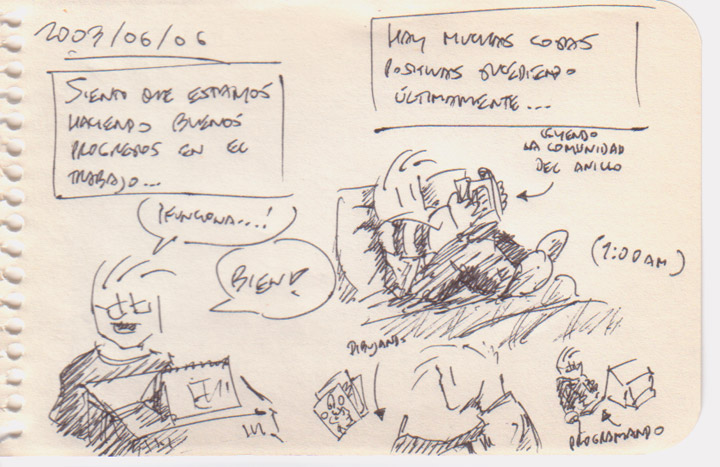 2003/06/06
SIENTO QUE ESTAMOS
HACIENDO BUENOS
PROGRESOS EN EL
TRABAJO...
¡FUNCIONA...!
BIEN!
HAY MUCHAS COSAS
POSITIVAS SUCEDIENDO
ÚLTIMAMENTE...
LEYENDO
LA COMUNIDAD
DEL ANILLO
(1:00 AM)
DIBUJANDO
PROGRAMANDO